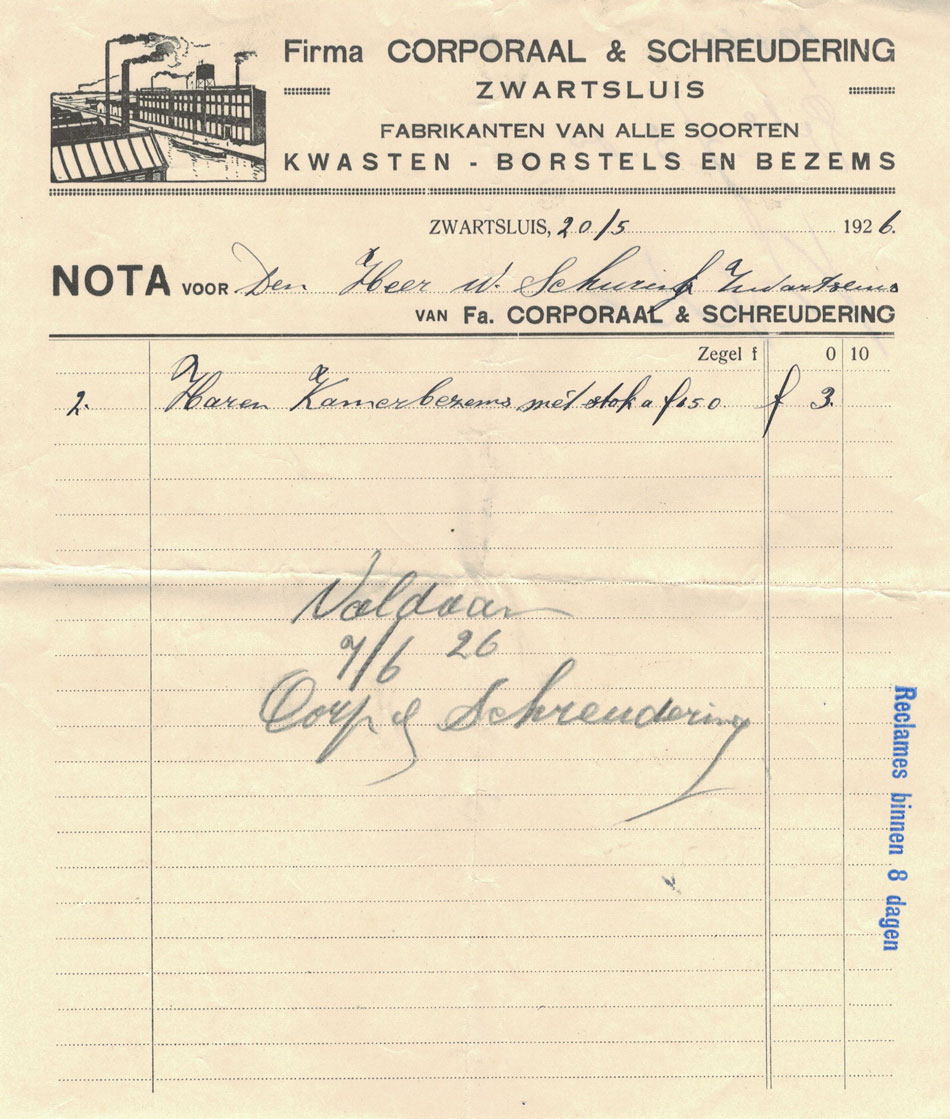 Firma CORPORAAL & SCHREUDERING
ZWARTSLUIS
FABRIKANTEN VAN ALLE SOORTEN
KWASTEN - BORSTELS EN BEZEMS
ZWARTSLUIS, 20/5 1926.
NOTA VOOR Den Heer W. Schuring
VAN Fa. CORPORAAL & SCHREUDERING
Zegel f 0 10
2. Haren Kamerbezems met stok a f 1.50 f 3.
Voldaan
7/6 26
Corp & Schreudering
Reclames binnen 8 dagen